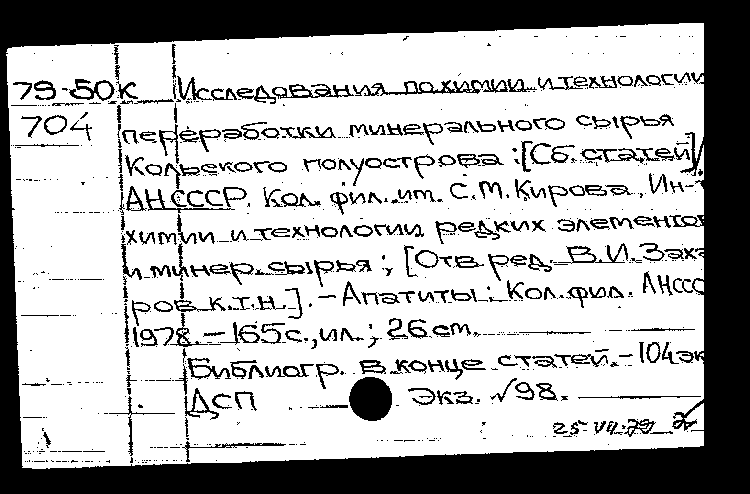 79-50к Исследования по химии и технологии
704 переработки минерального сырья
Кольского полуострова : [Сб. статей] /
АН СССР. Кол. фил. им. С. М. Кирова, Ин-т
химии и технологии редких элементов
и минер. сырья ; [Отв. ред. В. И. Заха-
ров к.т.н.]. – Апатиты : Кол. фил. АН СССР
1978. – 165 с., ил. ; 26 см.
Библиогр. в конце статей. – 104 эк
ДСП Экз. √98.
25-VII-79